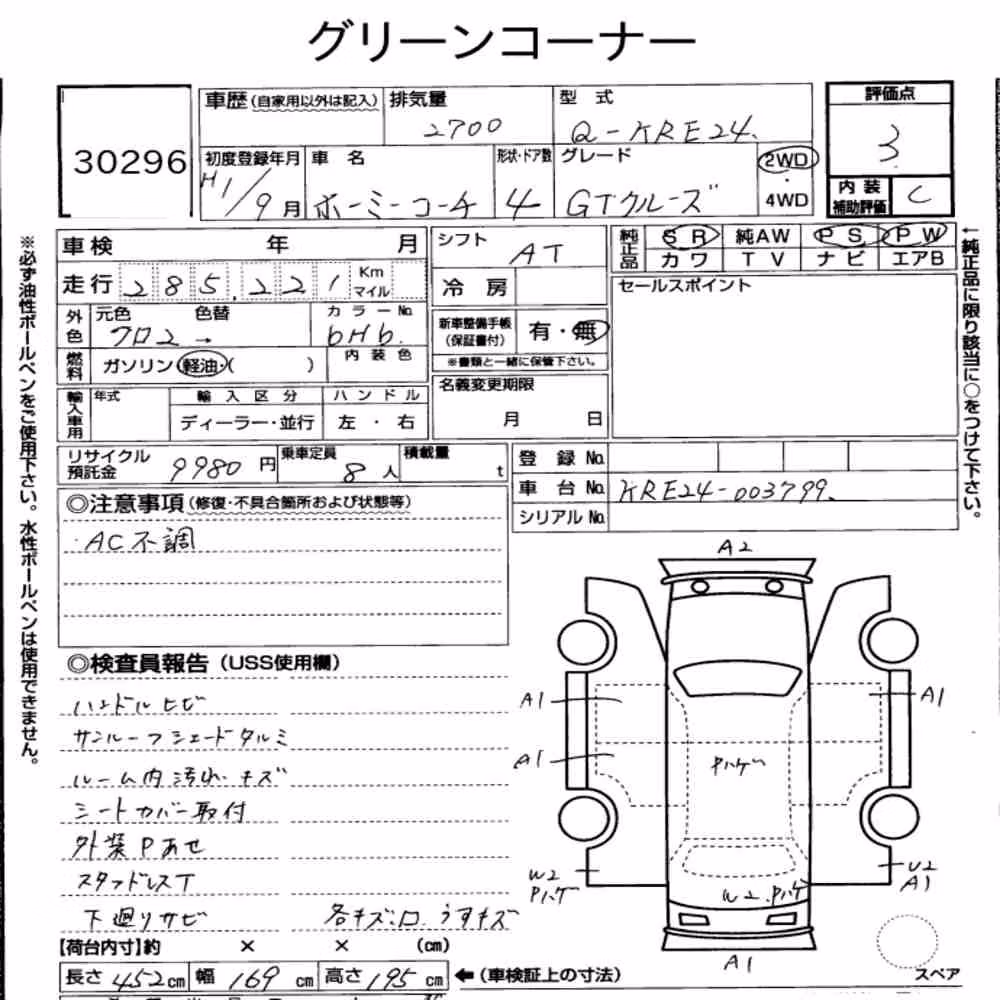 グリーンコーナー
30296
車歴(自家用以外は記入)
排気量 2700
型式 Q-KRE24.
評価点 3
初度登録年月 H1/9月
車名 ホーミーコーチ
形状・ドア数 4
グレード GTクルーズ
2WD
・
4WD
内装
補助評価 C
車検 年 月
走行 285,221 Km
マイル
外色 元色 クロ2 → 色替
カラーNo. 6H6.
燃料 ガソリン・軽油・( )
内装色
輸入車用 年式
輸入区分
ディーラー・並行
ハンドル
左・右
シフト AT
冷房
新車整備手帳
(保証書付) 有・無
※書類と一緒に保管下さい。
名義変更期限
月 日
純正品 SR 純AW PS PW
カワ TV ナビ エアB
セールスポイント
←純正品に限り該当に○をつけて下さい。
※必ず油性ボールペンをご使用下さい。水性ボールペンは使用できません。
リサイクル
預託金 9980円
乗車定員 8人
積載量 t
登録No.
車台No. KRE24-003799.
シリアルNo.
◎注意事項(修復・不具合箇所および状態等)
・AC不調
◎検査員報告(USS使用欄)
ハンドルヒビ
サンルーフシェードタルミ
ルーム内汚れ・キズ
シートカバー取付
外装Pあせ
スタッドレスT
下廻りサビ 各キズ凹 うすキズ
A2
A1
A1
A1
Pハゲ
W2
Pハゲ
W2.Pハゲ
U2
A1
A1
スペア
【荷台内寸】約 × × (cm)
長さ 452cm 幅 169cm 高さ 195cm ←(車検証上の寸法)